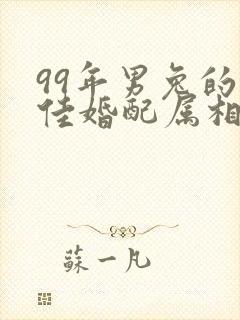 99年男兔的
佳婚配属相
蘇一凡